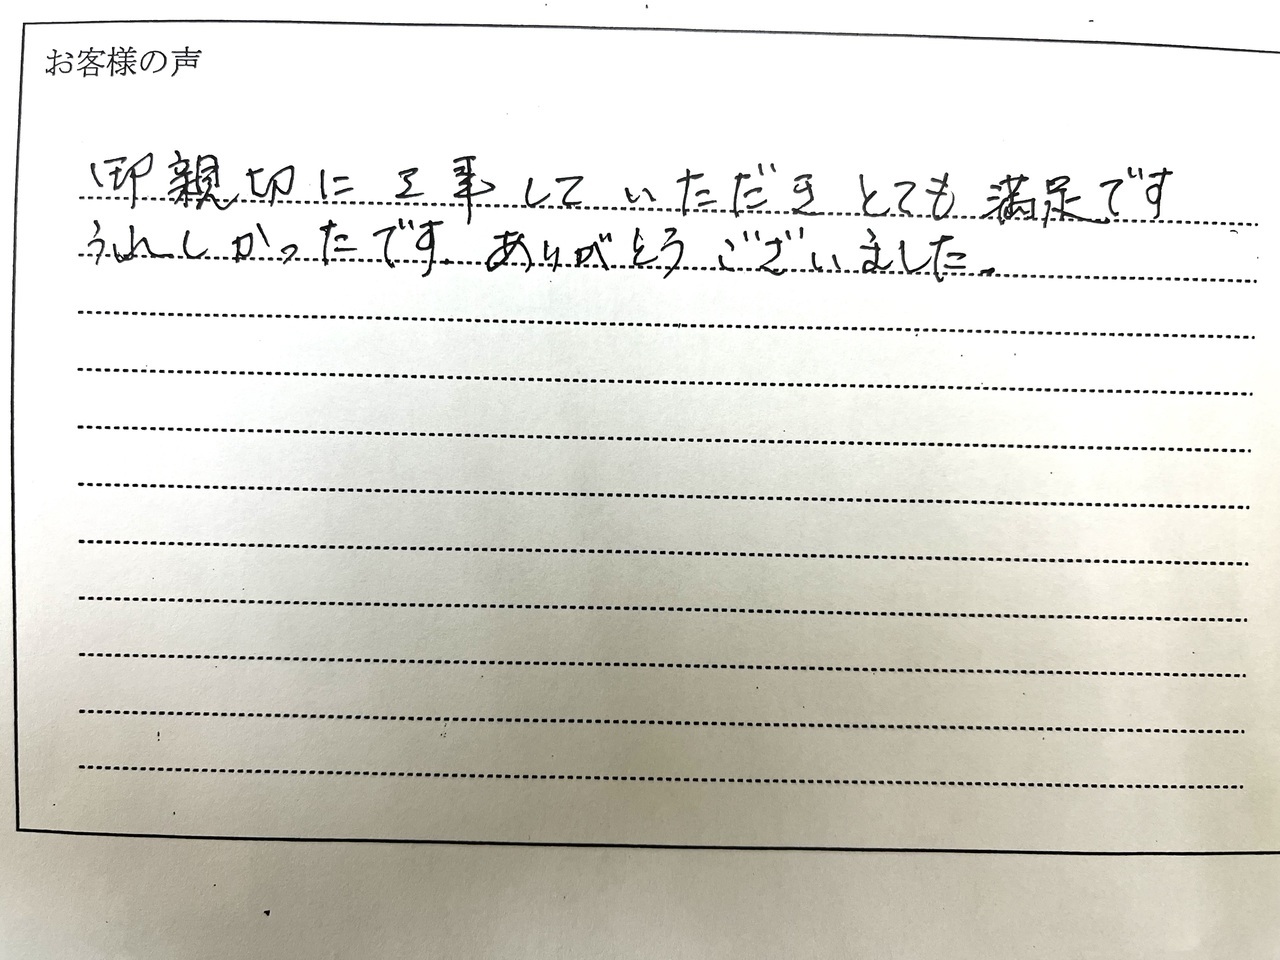 お客様の声
御親切に工事していただきとても満足です
うれしかったです。ありがとうございました。